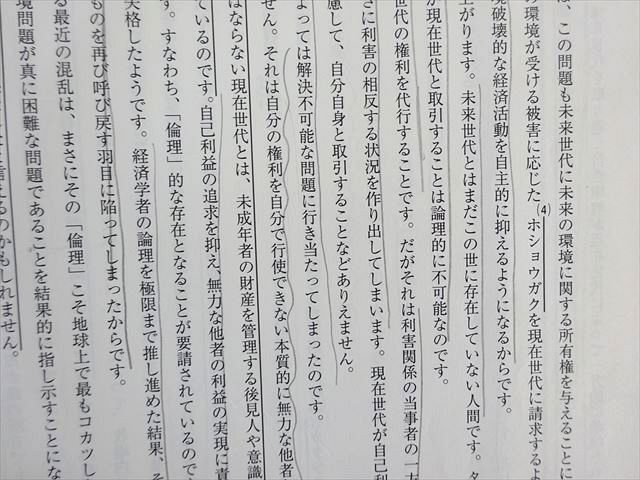 は、この問題も未来世代に未来の環境に関する所有権を与えることに
環境が受ける被害に応じた(4)ホショウガクを現在世代に請求するよ
境破壊的な経済活動を自主的に抑えるようになるからです。
上がります。未来世代とはまだこの世に存在していない人間です。タ
が現在世代と取引することは論理的に不可能なのです。
世代の権利を代行することです。だがそれは利害関係の当事者の一方
さに利害の相反する状況を作り出してしまいます。現在世代が自己利
慮して、自分自身と取引することなどありえません。
よっては解決不可能な問題に行き当たってしまったのです。
せん。それは自分の権利を自分で行使できない本質的に無力な他者
はならない現在世代とは、未成年者の財産を管理する後見人や意識
ているのです。自己利益の追求を抑え、無力な他者の利益の実現に責
す。すなわち、「倫理」的な存在となることが要請されているので
失格したようです。経済学者の論理を極限まで推し進めた結果、そ
ものを再び呼び戻す羽目に陥ってしまったからです。
る最近の混乱は、まさにその「倫理」こそ地球上で最もコカツし
境問題が真に困難な問題であることを結果的に指し示すことにな
言えるのかもしれません。